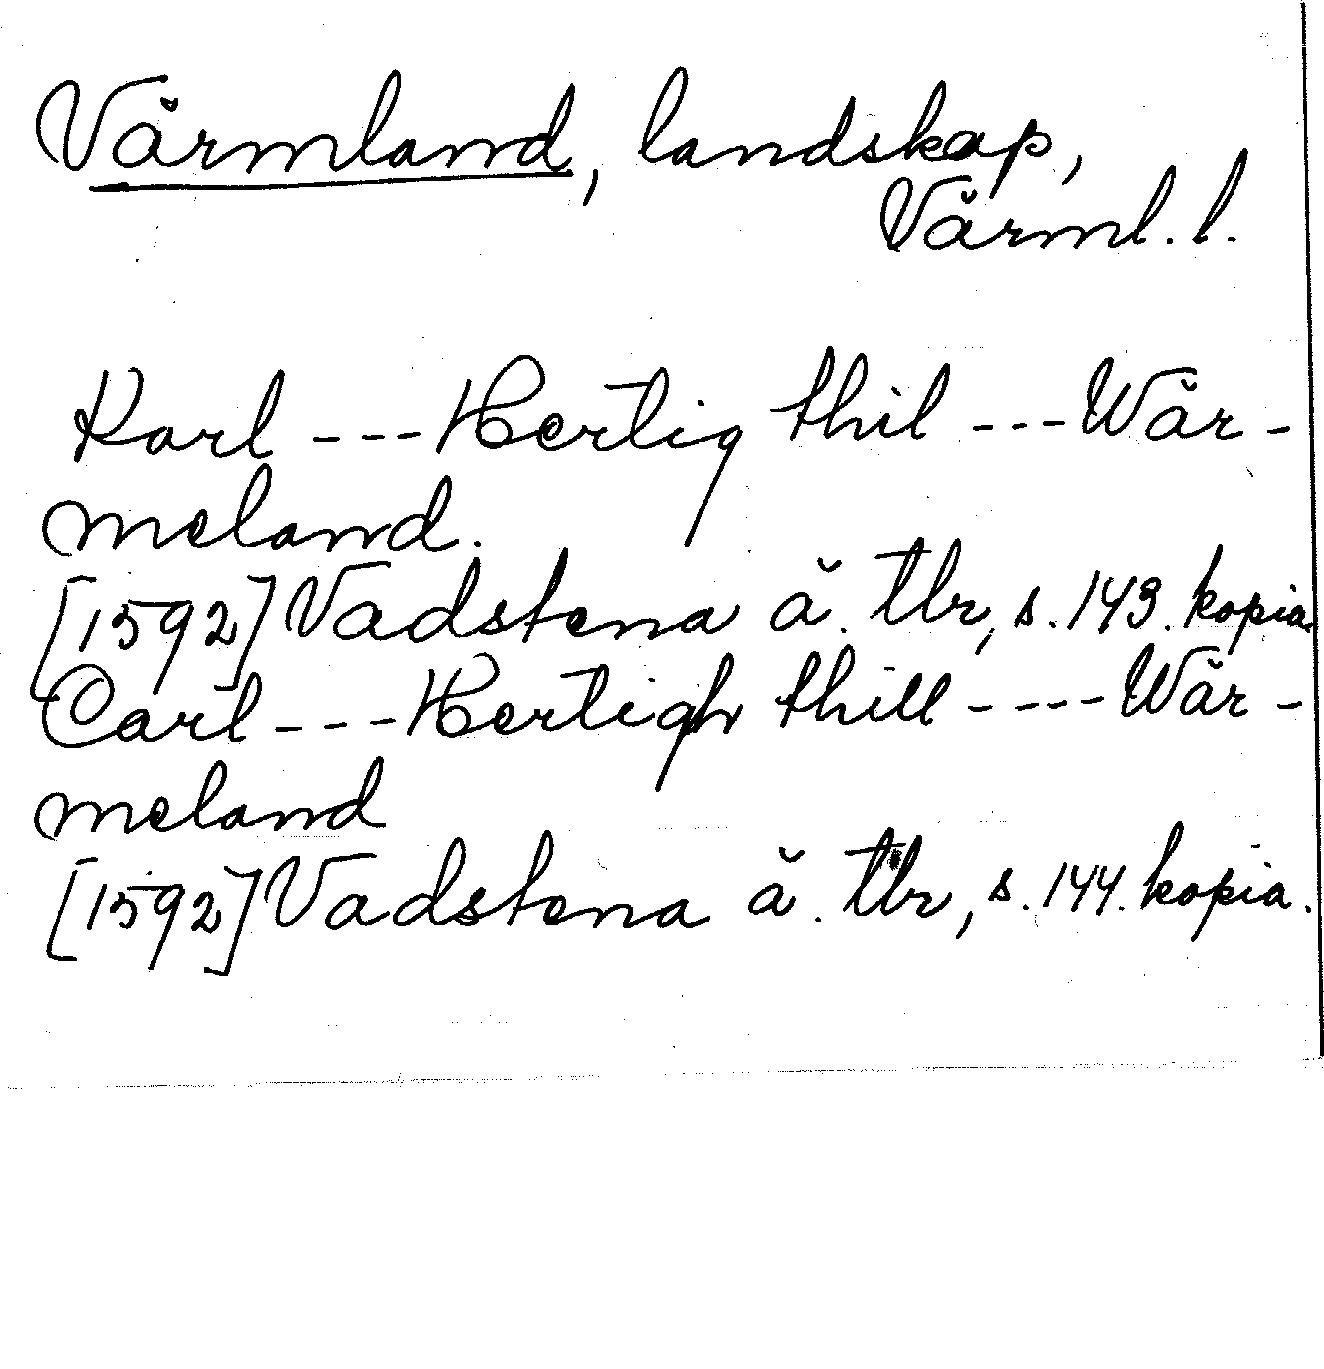 Värmland, landskap,
Värml. l.
Karl --- Hertig thil --- Wär-
meland.
[1592] Vadstena ä. tbr, s. 143. kopia.
Carl --- Hertigh thill ---- Wär-
meland
[1592] Vadstena ä. tbr, s. 144. kopia.